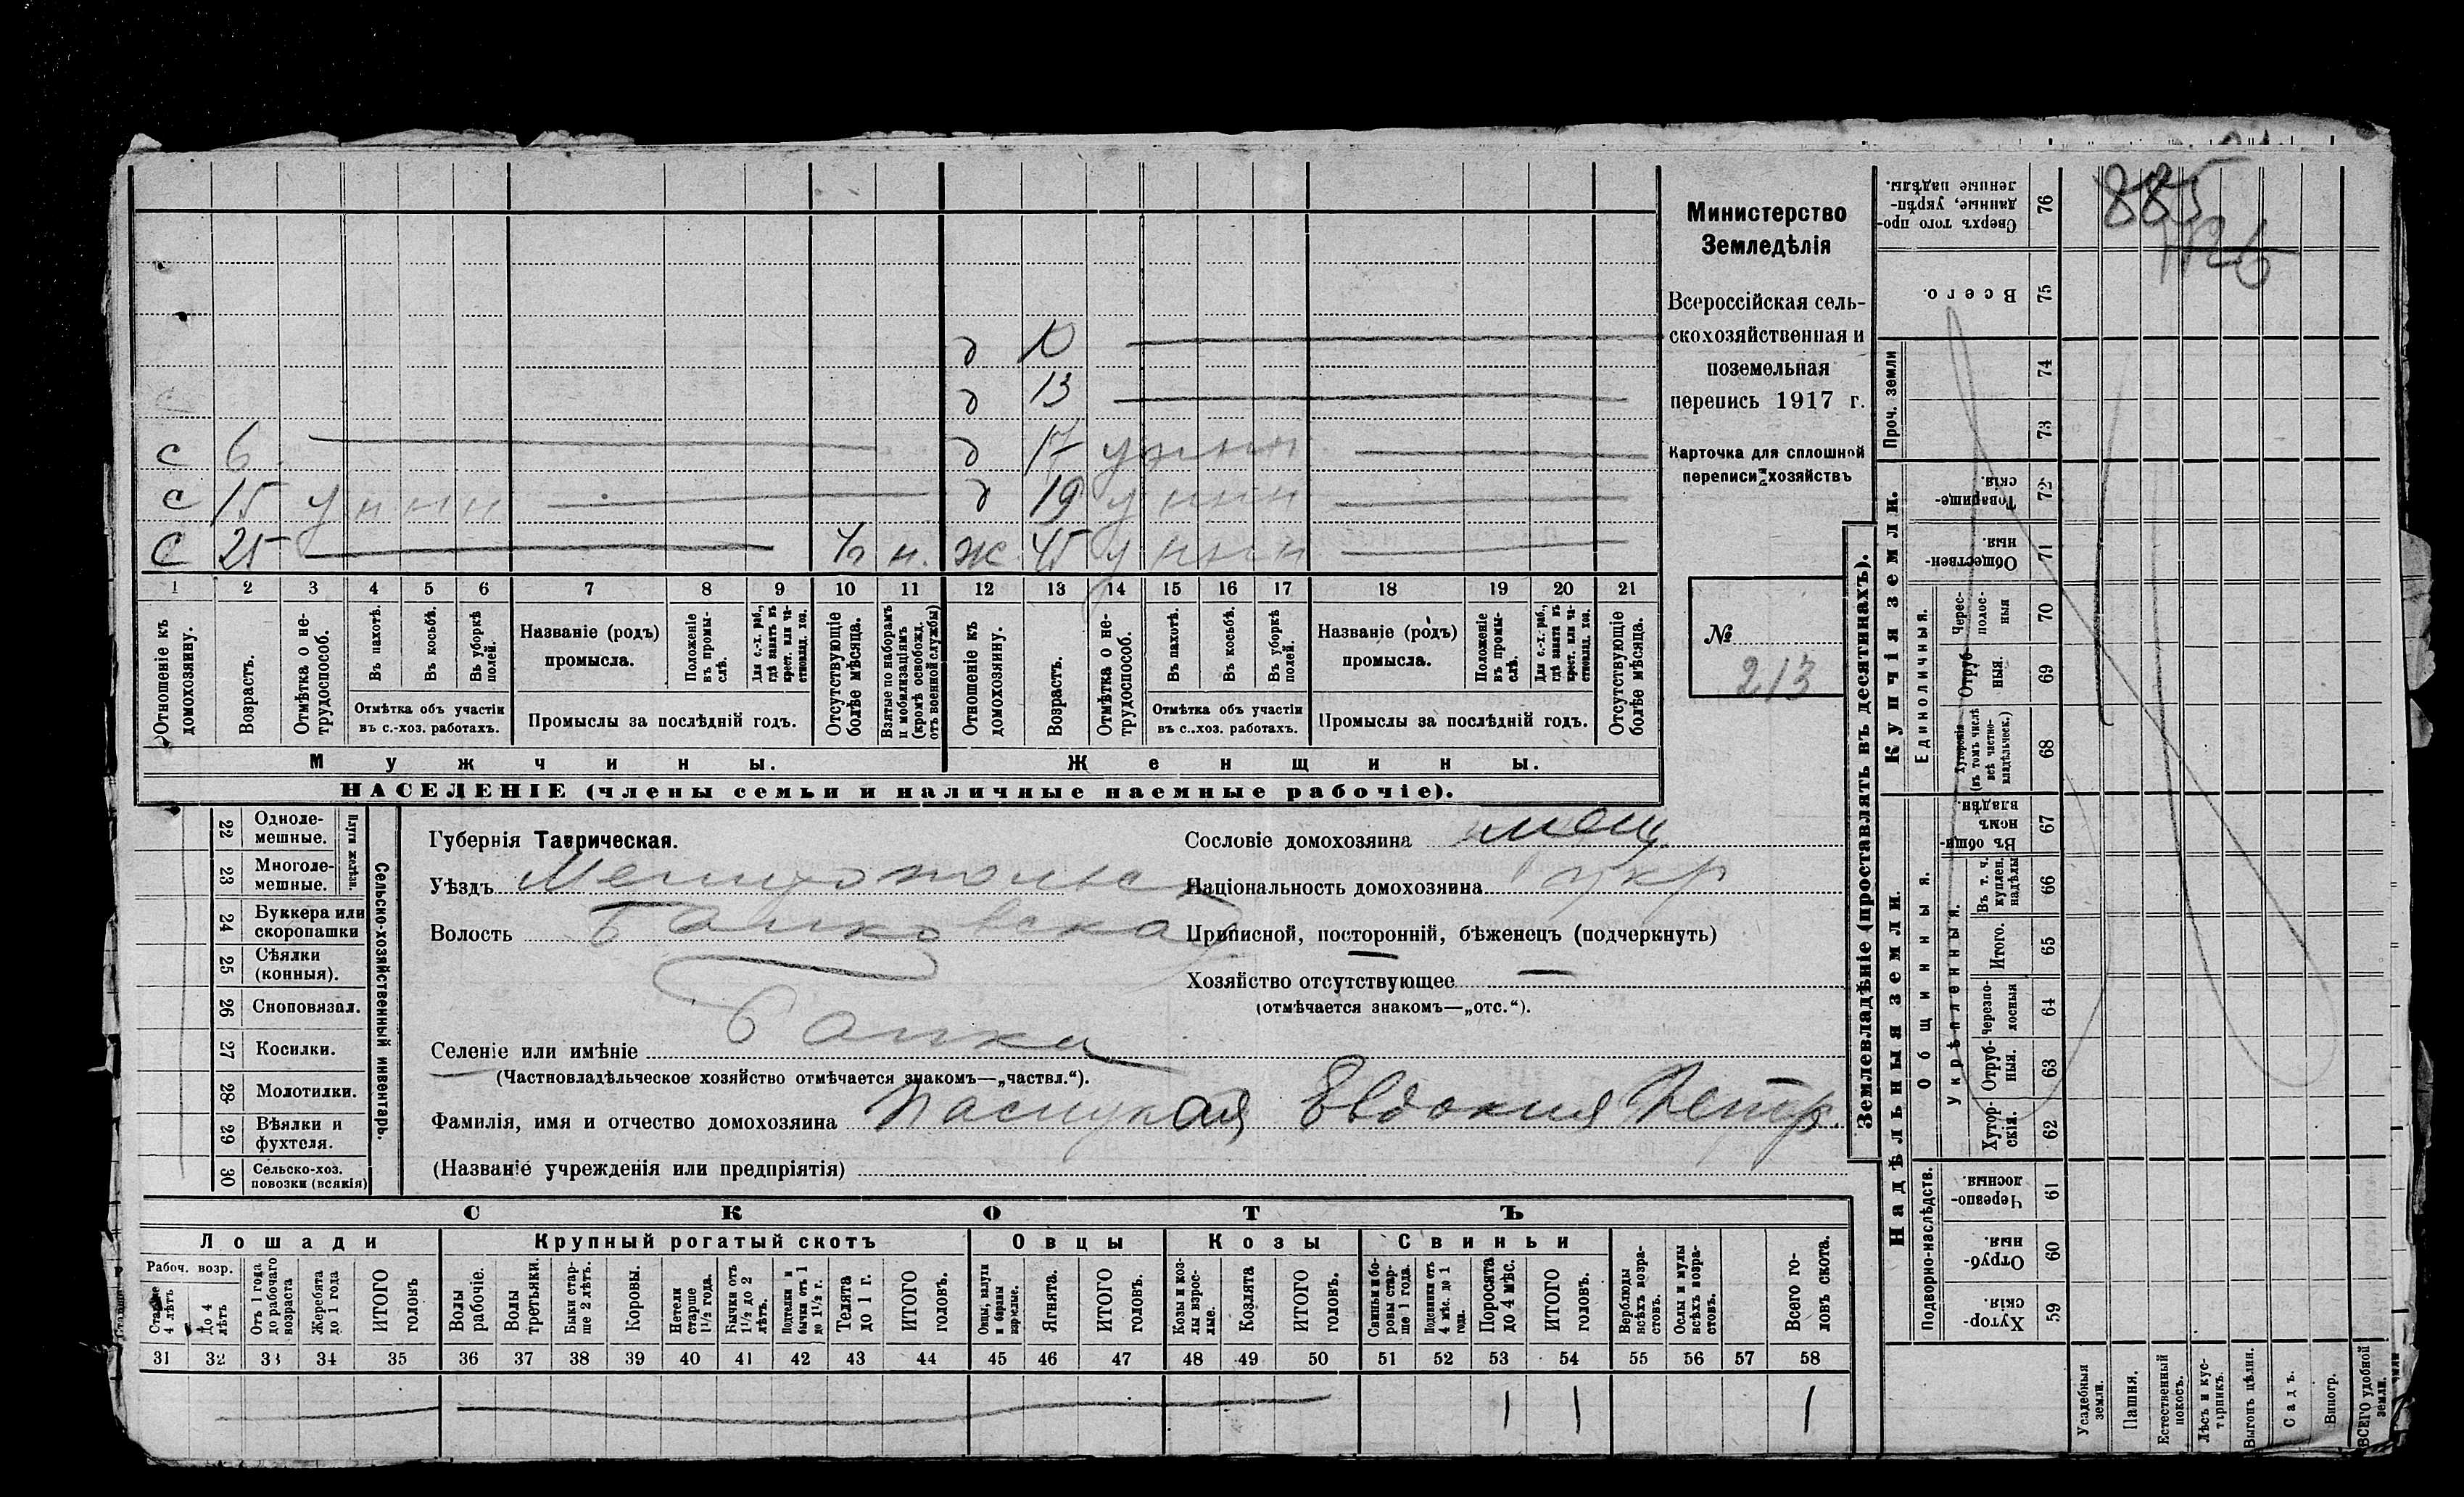 885
1126
Министерство
Земледѣлія
Всероссійская сель-
скохозяйственная и
поземельная
перепись 1917 г.
Карточка для сплошной
переписи хозяйствъ
№
213
д 10
д 13
с 6 д 17
с 15 у н н н д 19 у н н н
с 25 н. ж 45 у н н н
1 2 3 4 5 6 7 8 9 10 11 12 13 14 15 16 17 18 19 20 21
Отношеніе къ домохозяину.
Возрастъ.
Отмѣтка о не-трудоспособ.
Въ пахотѣ.
Въ косьбѣ.
Въ уборкѣ полей.
Отмѣтка объ участіи
въ с.-хоз. работахъ.
Названіе (родъ)
промысла.
Положеніе въ промы-слѣ.
Для с.-х. раб., гдѣ занятъ въ крест. или ча-стновлад. хоз.
Промыслы за послѣдній годъ.
Отсутствующіе болѣе мѣсяца.
Взятые по наборамъ и мобилизаціямъ (кромѣ освобожд. отъ военной службы)
Отношеніе къ домохозяину.
Возрастъ.
Отмѣтка о не-трудоспособ.
Въ пахотѣ.
Въ косьбѣ.
Въ уборкѣ полей.
Отмѣтка объ участіи
въ с.-хоз. работахъ.
Названіе (родъ)
промысла.
Положеніе въ промы-слѣ.
Для с.-х. раб., гдѣ занята въ крест. или ча-стновлад. хоз.
Промыслы за послѣдній годъ.
Отсутствующіе болѣе мѣсяца.
Мужчины. Женщины.
НАСЕЛЕНІЕ (члены семьи и наличные наемные рабочіе).
Сельско-хозяйственный инвентарь.
Плуги желѣзн.
22 Одноле-мешные.
23 Многоле-мешные.
24 Буккера или скоропашки
25 Сѣялки (конныя).
26 Сноповязал.
27 Косилки.
28 Молотилки.
29 Вѣялки и фухтеля.
30 Сельско-хоз. повозки (всякія)
Губернія Таврическая.
Уѣздъ Мелитопольск
Волость Балковская
Селеніе или имѣніе Балки
(Частновладѣльческое хозяйство отмѣчается знакомъ—„частвл.“).
Сословіе домохозяина мещ
Національность домохозяина укр
Приписной, посторонній, бѣженецъ (подчеркнуть)
Хозяйство отсутствующее
(отмѣчается знакомъ—„отс.“).
Фамилія, имя и отчество домохозяина Евдокия Петр.
(Названіе учрежденія или предпріятія)
СКОТЪ
Лошади Крупный рогатый скотъ Овцы Козы Свиньи
Рабоч. возр.
Старше 4 лѣтъ
До 4 лѣтъ
Отъ 1 года до рабочаго возраста
Жеребята до 1 года
ИТОГО головъ
Волы рабочіе.
Волы третьяки.
Быки стар-ше 2 лѣтъ.
Коровы.
Нетели старше 1½ года.
Бычки отъ 1½ до 2 лѣтъ.
Подтелки и бычки отъ 1 до 1½ г.
Телята до 1 г.
ИТОГО головъ.
Овцы, валухи и бараны взрослые.
Ягнята.
ИТОГО головъ.
Козы и коз-лы взрос-лые.
Козлята
ИТОГО головъ.
Свиньи и бо-ровы стар-ше 1 года.
Подсвинки отъ 4 мѣс. до 1 года.
Поросята до 4 мѣс.
ИТОГО головъ.
Верблюды всѣхъ возра-стовъ.
Ослы и мулы всѣхъ возра-стовъ.
Всего го-ловъ скота.
31 32 33 34 35 36 37 38 39 40 41 42 43 44 45 46 47 48 49 50 51 52 53 54 55 56 57 58
1 1 1
Землевладѣніе (проставлять въ десятинахъ).
Купчія земли.
Надѣльныя земли.
Единоличныя.
Общинныя.
Укрѣпленныя.
Подворно-наслѣдств.
Проч. земли
76 Сверхъ того про-данные, укрѣп-ленные надѣлы.
75 Всего.
74
73
72 Товарище-скія.
71 Обществен-ныя.
70 Черес-полос-ныя
69 Отруб-ныя.
68 Хуторскія (въ томъ числѣ всѣ частно-владѣльческ.)
67 Въ общин-номъ владѣн.
66 Въ т. ч. куплен. надѣлы
65 Итого.
64 Черезпо-лосныя
63 Отруб-ныя.
62 Хутор-скія.
61 Черезпо-лосныя.
60 Отруб-ныя.
59 Хутор-скія.
Усадебныя земли.
Пашня.
Естественный покосъ.
Лѣсъ и кус-тарникъ.
Выгонъ цѣлин.
Садъ.
Виногр.
ВСЕГО удобной земли.